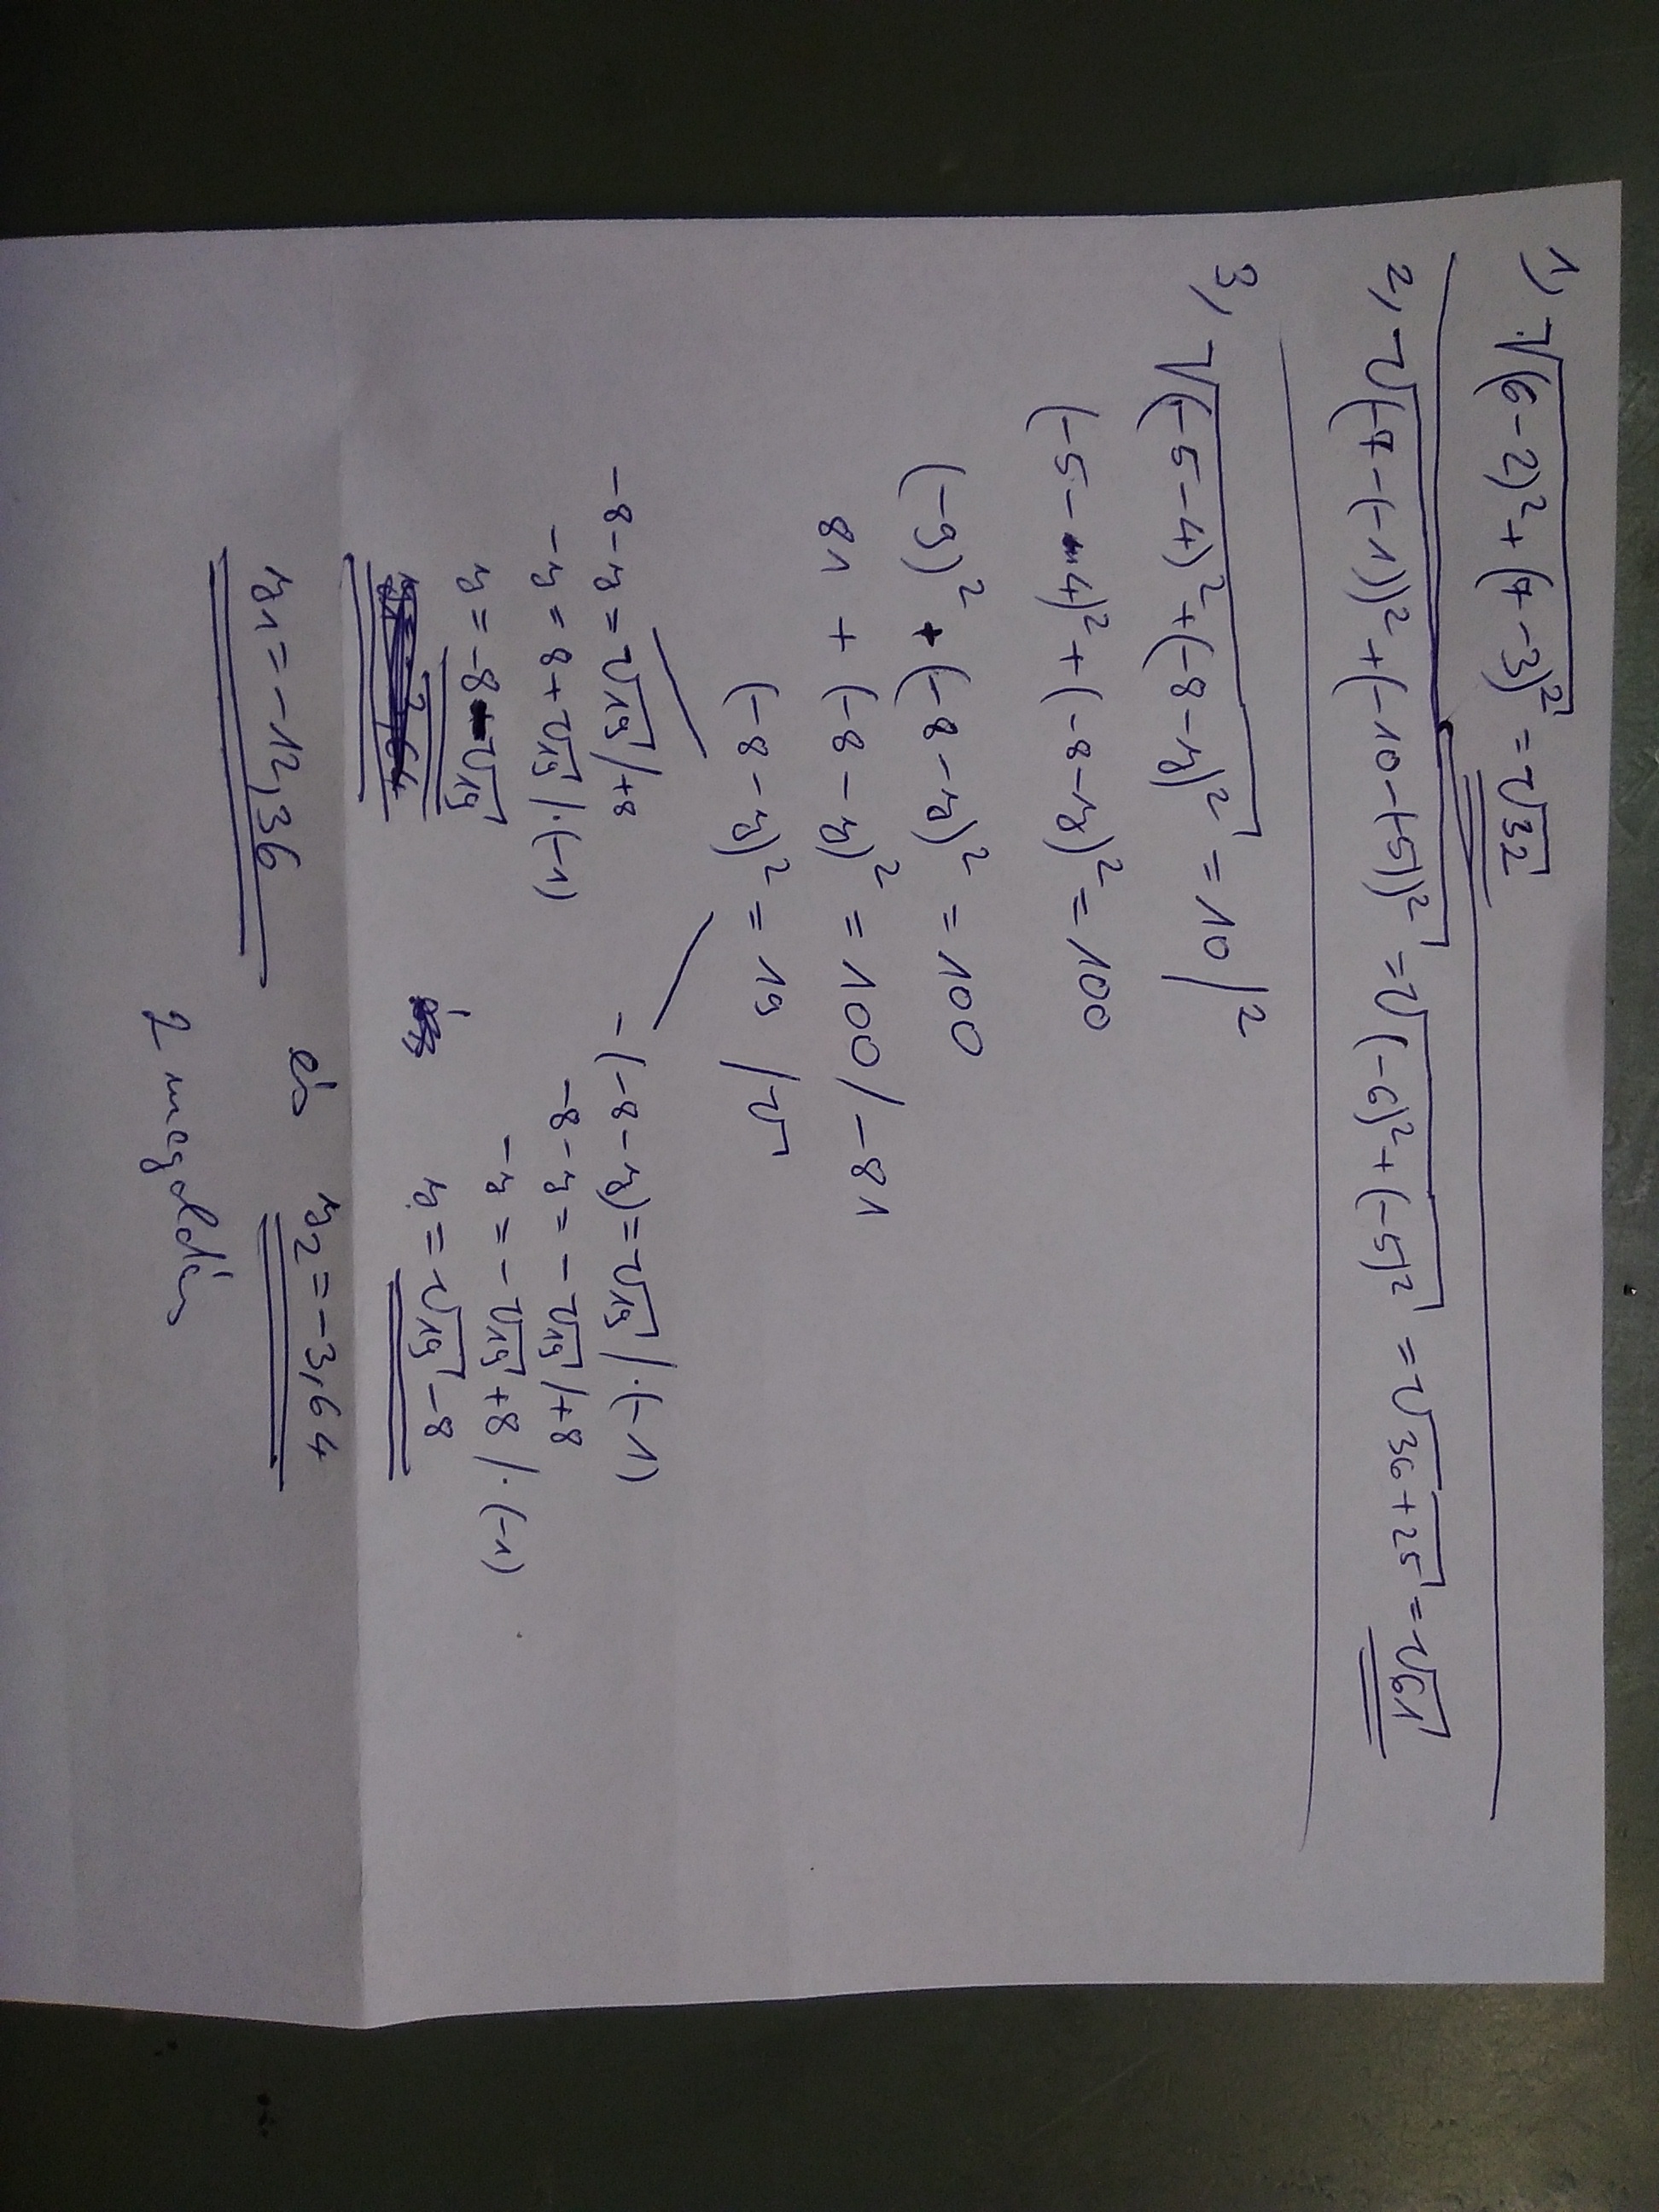 1, √(6-2)²+(7-3)² = √32
2, √(-7-(-1))²+(-10-(-5))² = √(-6)²+(-5)² = √36+25 = √61
3, √(-5-4)²+(-8-y)² = 10 /²
(-5-4)²+(-8-y)² = 100
(-9)² + (-8-y)² = 100
81 + (-8-y)² = 100 /-81
(-8-y)² = 19 /√
-8-y = √19 /+8
-y = 8+√19 /·(-1)
y = -8-√19
-(-8-y) = √19 /·(-1)
-8-y = -√19 /+8
-y = -√19+8 /·(-1)
y = √19-8
y1 = -12,36 és y2 = -3,64
2 megoldás